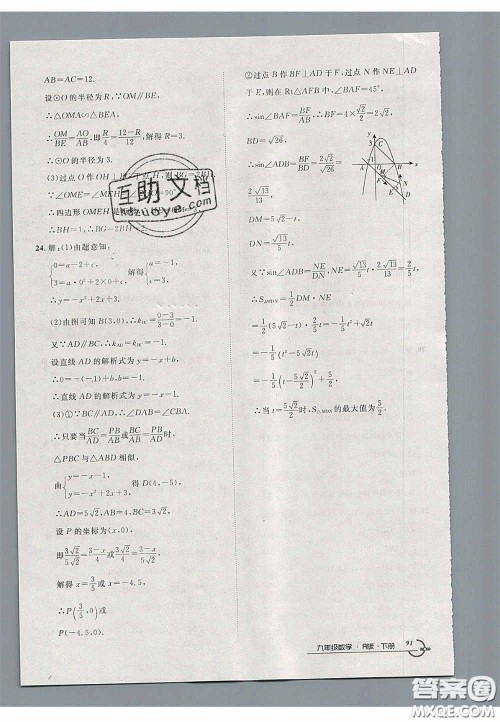 AB=AC=12.
设⊙O的半径为R,∵OM∥BE,
∴△OMA∽△BEA,
∴OM/BE=AO/AB,即R/4=(12-R)/12,解得R=3.
∴⊙O的半径为3.
(3)过点O作OH⊥
∵∠OME=∠MEH
∴四边形OMEH是
∴BH=1,∴BG=2BH
24.解:(1)由题意知:
{0=a-2+c, 3=a×0²+2×0+c, 解得{a=-1, c=3.
(2)由图可知B(3,0),∴k_BC=(0-3)/(3-0)=-1.
又∵AD∥BC,∴k_AD=k_BC=-1.
设直线AD的解析式为y=-x+b,
∴0=-(-1)+b,∴b=-1.
∴直线AD的解析式为y=-x-1.
(3)①∵BC∥AD,∴∠DAB=∠CBA.
∴只要当BC/AD=PB/AB或BC/AB=PB/AD时,
△PBC与△ABD相似,
由{y=-x-1, y=-x²+2x+3, 得D(4,-5),
∴AD=5√2,AB=4,BC=3√2,
设P的坐标为(x,0),
即3√2/5√2=(3-x)/4或3√2/4=(3-x)/5√2,
解得x=3/5或x=-4.5,
∴P(3/5,0)或
P(-4.5,0).
②过点B作BF⊥AD于F,过点N作NE⊥AD
于E,则在Rt△AFB中,∠BAF=45°,
∴sin∠BAF=BF/AB,∴BF=4×√2/2=2√2,
BD=√26,
∴sin∠ADB=BF/BD=2√2/√26=
2√13/13,
DM=5√2-t,
DN=2t,
又∵sin∠ADB=NE/DN,NE=
∴S△MDN=1/2DM·NE
=1/2(5√2-t)·
=-1/5(t²-5√2t)
∴当t=5√2/2时,S△MDN的最大值为5/2.
互助文档
九年级数学·R版·下册
91
答案圈
MXQE.COM